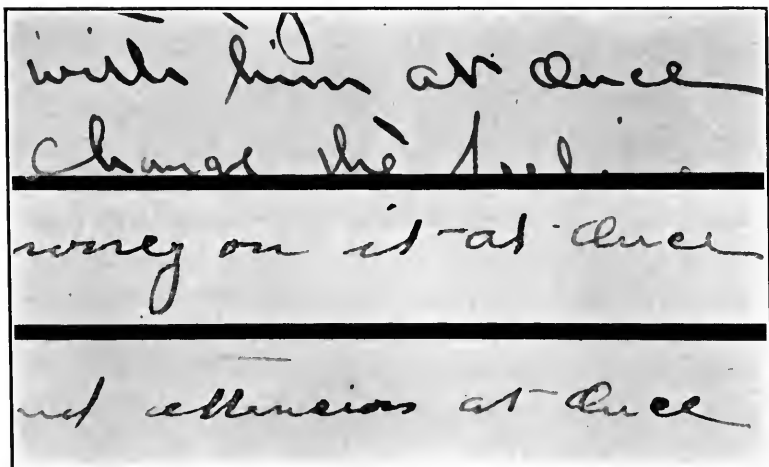 with him at once
change the feeling
money on it at once
nd attension at once